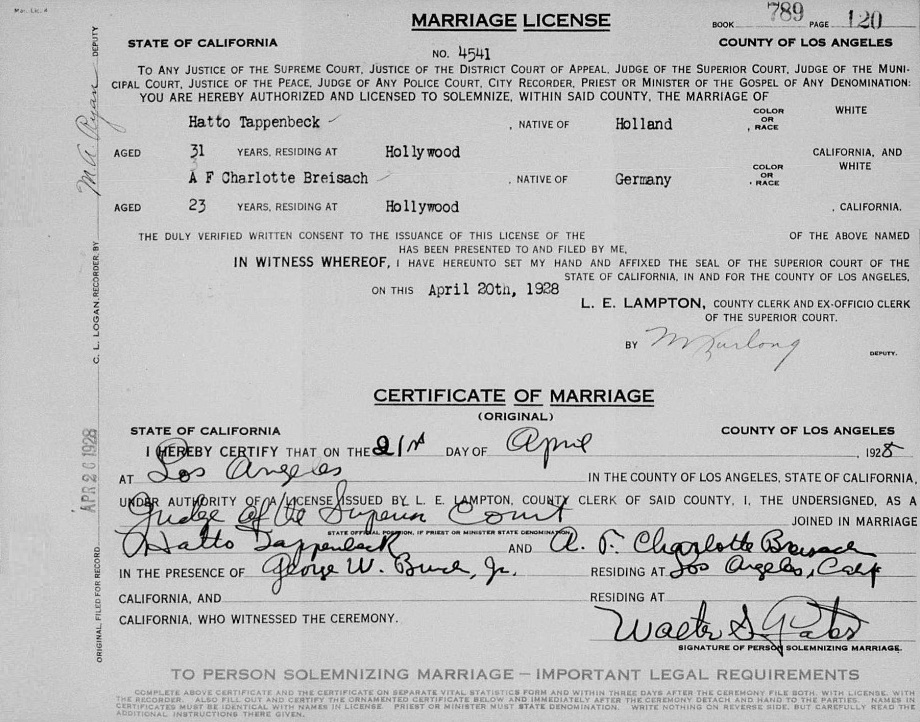 Mar. Lic. 4
MARRIAGE LICENSE
BOOK 789 PAGE 120
STATE OF CALIFORNIA
COUNTY OF LOS ANGELES
NO. 4541
TO ANY JUSTICE OF THE SUPREME COURT, JUSTICE OF THE DISTRICT COURT OF APPEAL, JUDGE OF THE SUPERIOR COURT, JUDGE OF THE MUNI-
CIPAL COURT, JUSTICE OF THE PEACE, JUDGE OF ANY POLICE COURT, CITY RECORDER, PRIEST OR MINISTER OF THE GOSPEL OF ANY DENOMINATION:
YOU ARE HEREBY AUTHORIZED AND LICENSED TO SOLEMNIZE, WITHIN SAID COUNTY, THE MARRIAGE OF
Hatto Tappenbeck , NATIVE OF Holland , COLOR OR RACE WHITE
AGED 31 YEARS, RESIDING AT Hollywood CALIFORNIA, AND
A F Charlotte Breisach , NATIVE OF Germany , COLOR OR RACE WHITE
AGED 23 YEARS, RESIDING AT Hollywood , CALIFORNIA.
THE DULY VERIFIED WRITTEN CONSENT TO THE ISSUANCE OF THIS LICENSE OF THE OF THE ABOVE NAMED
HAS BEEN PRESENTED TO AND FILED BY ME,
IN WITNESS WHEREOF, I HAVE HEREUNTO SET MY HAND AND AFFIXED THE SEAL OF THE SUPERIOR COURT OF THE
STATE OF CALIFORNIA, IN AND FOR THE COUNTY OF LOS ANGELES,
ON THIS April 20th, 1928
L. E. LAMPTON, COUNTY CLERK AND EX-OFFICIO CLERK
OF THE SUPERIOR COURT.
BY M Furlong
DEPUTY.
CERTIFICATE OF MARRIAGE
(ORIGINAL)
STATE OF CALIFORNIA
COUNTY OF LOS ANGELES
I HEREBY CERTIFY THAT ON THE 21st DAY OF April , 1928
AT Los Angeles IN THE COUNTY OF LOS ANGELES, STATE OF CALIFORNIA,
UNDER AUTHORITY OF A LICENSE ISSUED BY L. E. LAMPTON, COUNTY CLERK OF SAID COUNTY, I, THE UNDERSIGNED, AS A
Judge of the Superior Court JOINED IN MARRIAGE
STATE OFFICIAL POSITION, IF PRIEST OR MINISTER STATE DENOMINATION
Hatto Tappenbeck AND A. F. Charlotte Breisach
IN THE PRESENCE OF George W. Jr. RESIDING AT Los Angeles, Calif
CALIFORNIA, AND RESIDING AT
CALIFORNIA, WHO WITNESSED THE CEREMONY.
Walter S. Gates
SIGNATURE OF PERSON SOLEMNIZING MARRIAGE.
TO PERSON SOLEMNIZING MARRIAGE — IMPORTANT LEGAL REQUIREMENTS
COMPLETE ABOVE CERTIFICATE AND THE CERTIFICATE ON SEPARATE VITAL STATISTICS FORM AND WITHIN THREE DAYS AFTER THE CEREMONY FILE BOTH, WITH LICENSE, WITH
THE RECORDER. ALSO FILL OUT AND COMPLETE THE ORNAMENTED CERTIFICATE BELOW AND IMMEDIATELY AFTER THE CEREMONY DETACH AND HAND TO THE PARTIES. NAMES IN
CERTIFICATES MUST BE IDENTICAL WITH NAMES IN LICENSE. PRIEST OR MINISTER MUST STATE DENOMINATION. WRITE NOTHING ON REVERSE SIDE, BUT CAREFULLY READ THE
ADDITIONAL INSTRUCTIONS THERE GIVEN.
ORIGINAL, FILED FOR RECORD APR 26 1928 C. L. LOGAN, RECORDER, BY M A Ryan DEPUTY